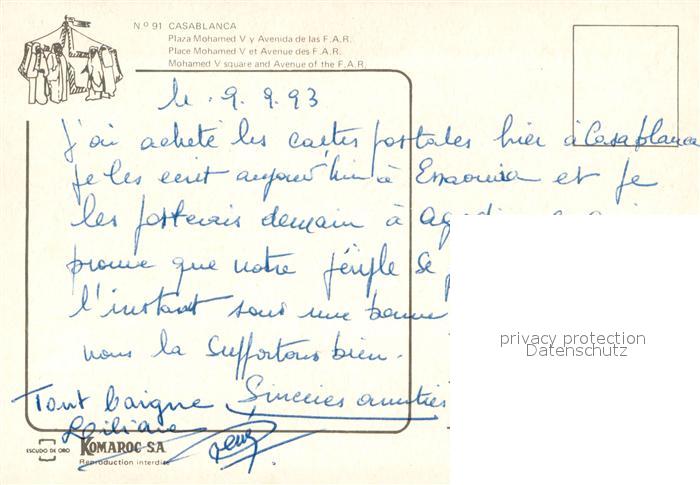 N.º 91 CASABLANCA
Plaza Mohamed V y Avenida de las F.A.R.
Place Mohamed V et Avenue des F.A.R.
Mohamed V square and Avenue of the F.A.R.
le . 9. 9. 93
J'ai acheté les cartes postales hier à Casablanca
Je les ecrit aujourd'hui à Essaouira et je
les posterais demain à
prouve que notre périple se
l'instant sous une bonne
nous la supportons bien.
Tout baigne Sincères amitiés
Liliane René
ESCUDO DE ORO KOMAROC S.A.
Reproduction interdite
privacy protection
Datenschutz